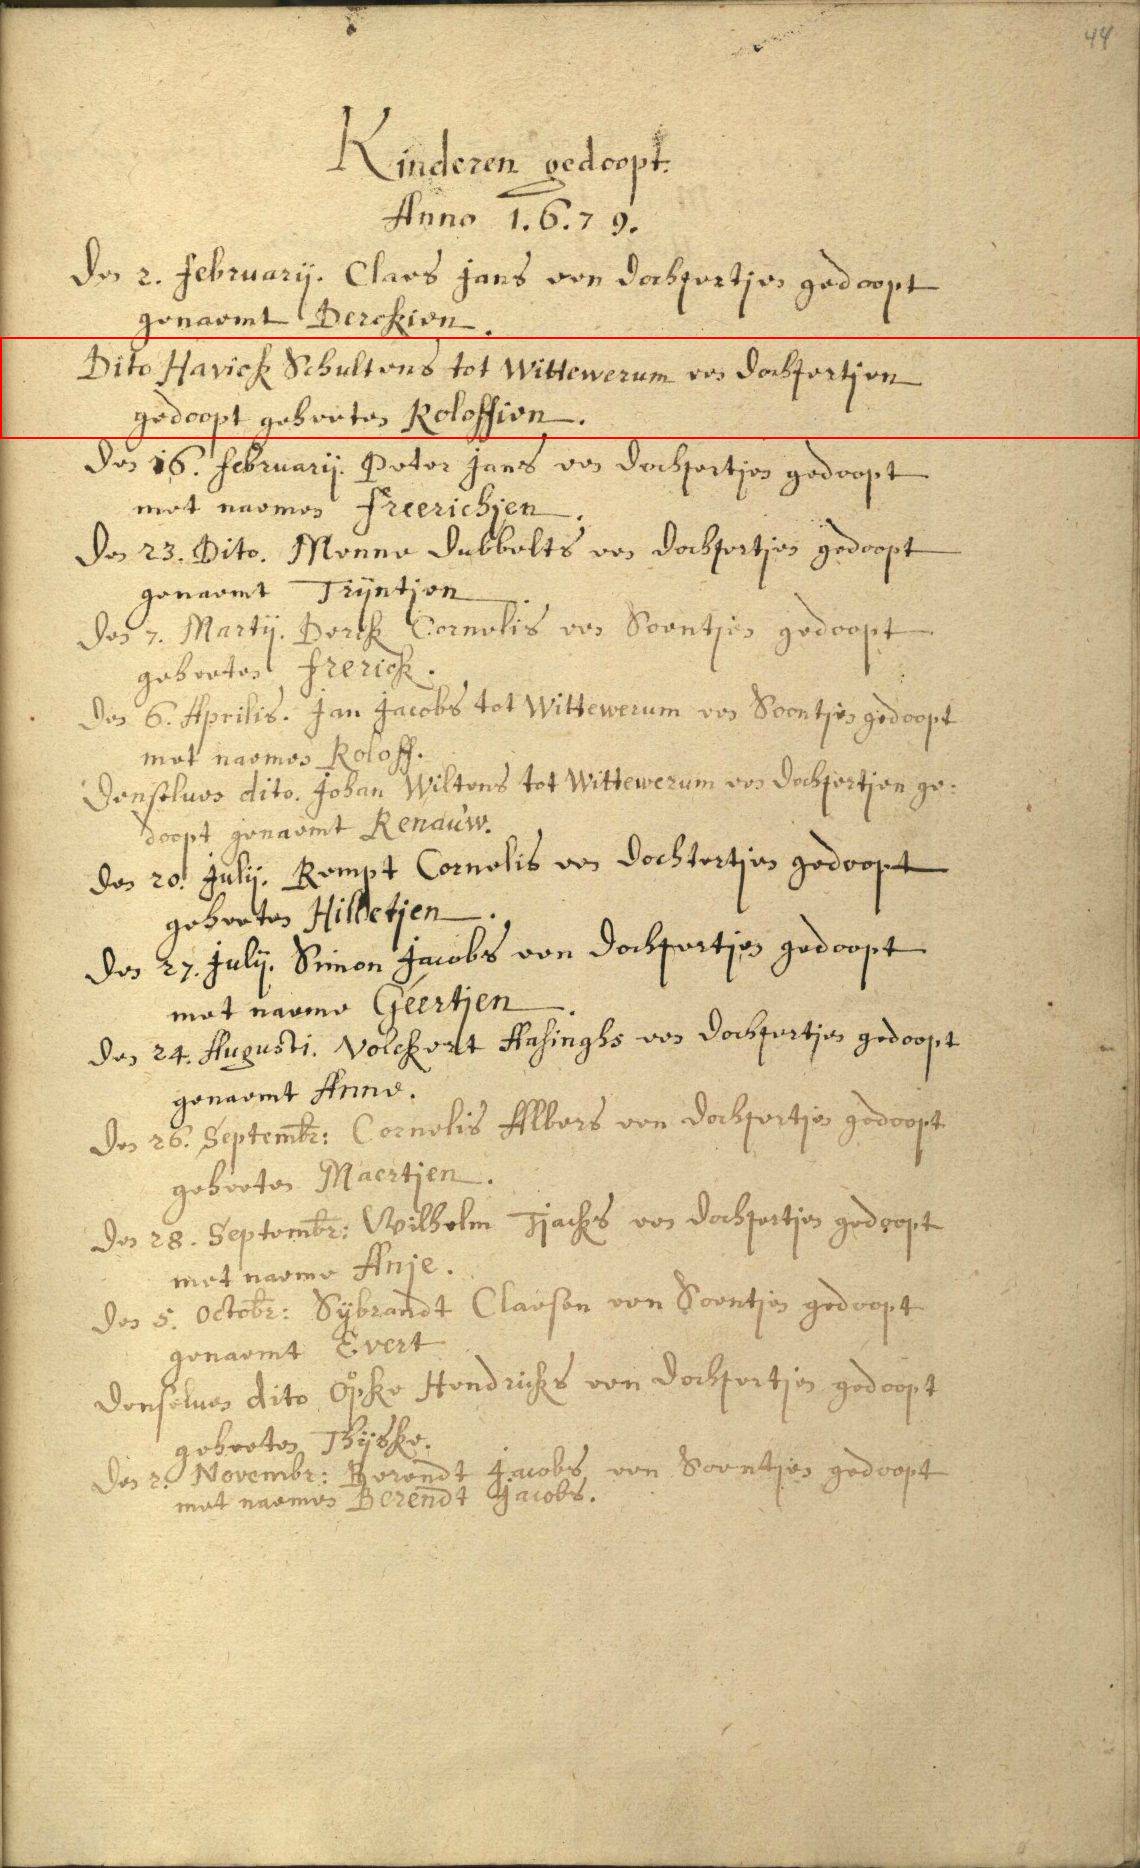 44
Kinderen gedoopt.
Anno 1.6.7 9.
Den 2. februarij. Claes Jans een dochtertjen gedoopt
genaemt Derckien.
Dito Havick Schultens tot Wittewerum een dochtertjen
gedoopt geheeten Roloffien.
Den 16. februarij. Peter Jans een dochtertjen gedoopt
met naemen freerichjen.
Den 23. Dito. Menne dubbelts een dochtertjen gedoopt
genaemt Trijntjen
Den 7. Martij. Derck Cornelis een Soontjen gedoopt
geheeten frerick.
Den 6. Aprilis. Jan Jacobs tot Wittewerum een Soontjen gedoopt
met naemen Roloff.
Denselven dito. Johan Wiltens tot Wittewerum een dochtertjen ge:
doopt genaemt Renauw.
Den 20. Julij. Rempt Cornelis een dochtertjen gedoopt
geheeten Hilletjen.
Den 27. Julij. Simon Jacobs een dochtertjen gedoopt
met naeme Geertjen.
Den 24. Augusti. Volckert Hasinghs een dochtertjen gedoopt
genaemt Anne.
Den 26. Septembr: Cornelis Albers een dochtertjen gedoopt
geheeten Maertjen.
Den 28. Septembr: Wilhelm Tjacks een dochtertjen gedoopt
met naeme Anje.
Den 5. Octobr: Sijbrandt Claesen een Soontjen gedoopt
genaemt Evert
Denselven dito Öpke Hendricks een dochtertjen gedoopt
geheeten Thijske.
Den 2. Novembr: Berendt Jacobs een Soontjen gedoopt
met naemen Berendt Jacobs.